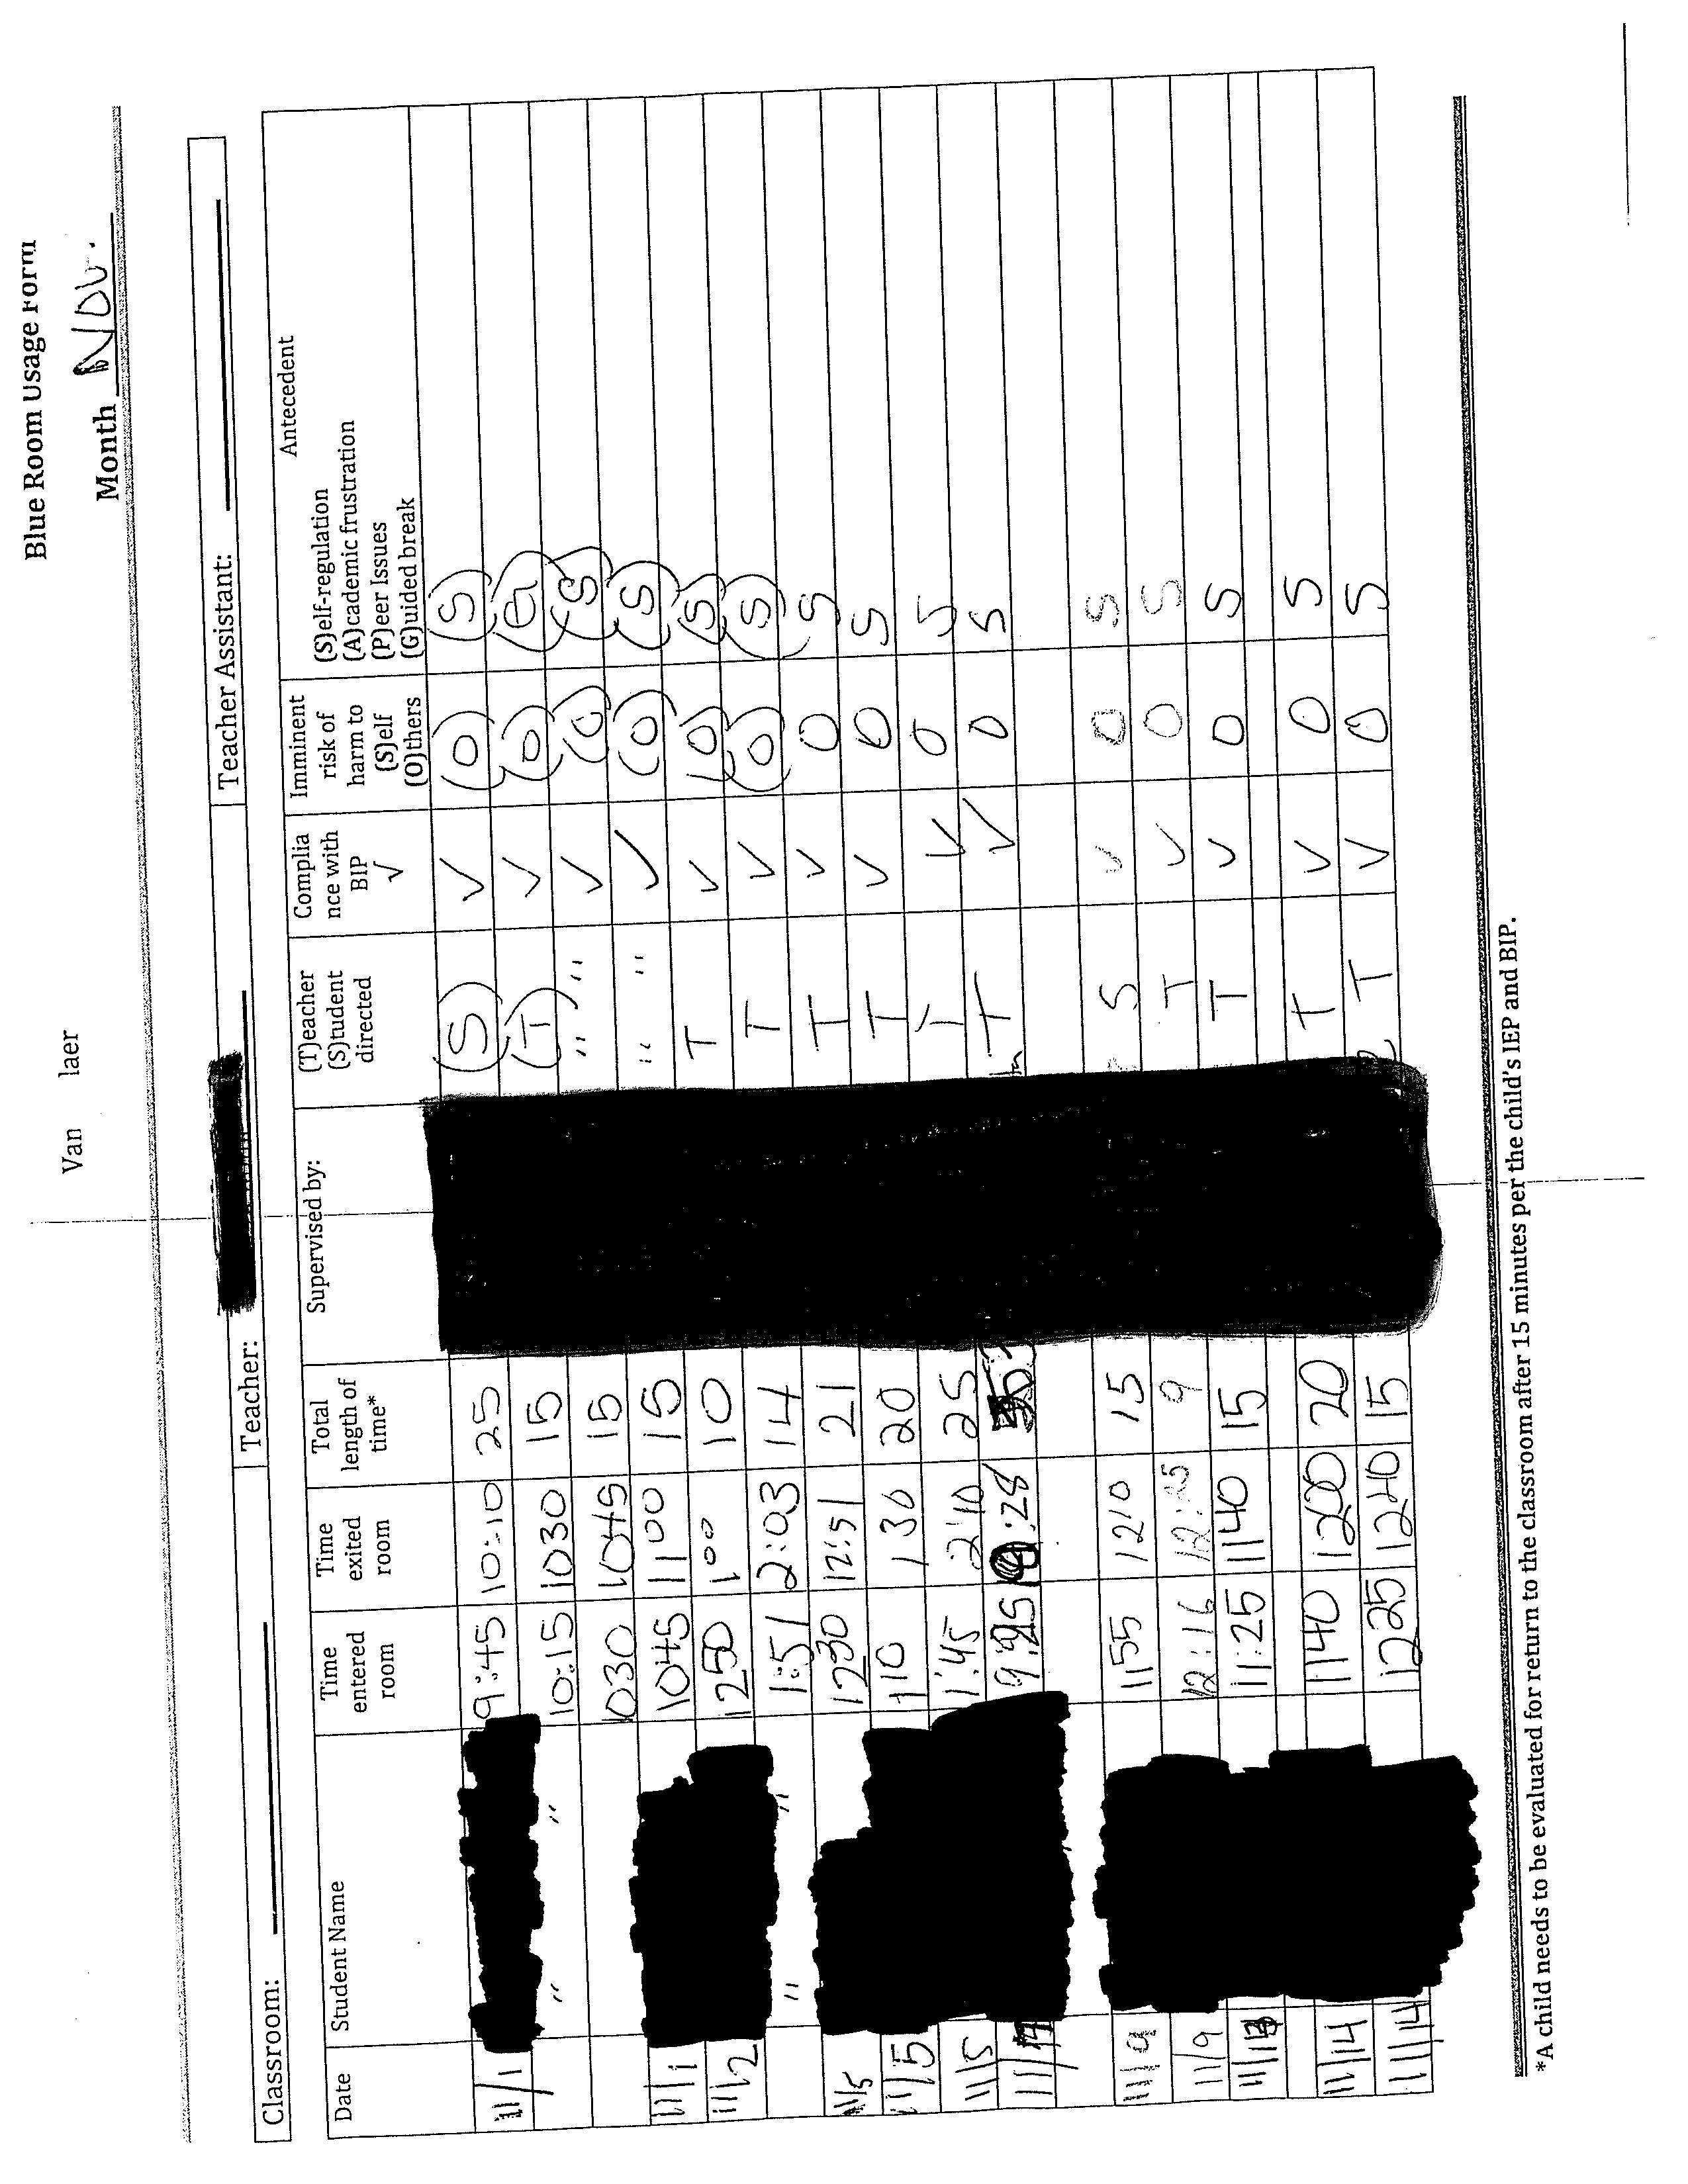 Blue Room Usage Form
Van laer
Month Nov.
Classroom: Teacher: Teacher Assistant:
Date Student Name Time entered room Time exited room Total length of time* Supervised by: (T)eacher (S)tudent directed Complia nce with BIP √ Imminent risk of harm to (S)elf (O)thers Antecedent (S)elf-regulation (A)cademic frustration (P)eer Issues (G)uided break
11/1 9:45 10:10 25 (S) √ (O) (S)
" " 10:15 1030 15 (T) √ (O) (G)
1030 1045 15 " " √ (O) (S)
11/1 1045 1100 15 " " √ (O) (S)
11/2 1250 100 10 T √ (O) (S)
" " 1:51 2:03 14 T √ (O) (S)
11/5 1230 12:51 21 T √ O S
11/5 110 130 20 T √ O S
11/5 1:45 2:10 25 T √ O S
:28 T √ O S
11/9 1155 1210 15 S √ O S
11/9 12:16 12:25 9 T √ O S
11/13 11:25 1140 15 T √ O S
11/14 1140 1200 20 T √ O S
11/14 1225 1240 15 T √ O S
*A child needs to be evaluated for return to the classroom after 15 minutes per the child's IEP and BIP.